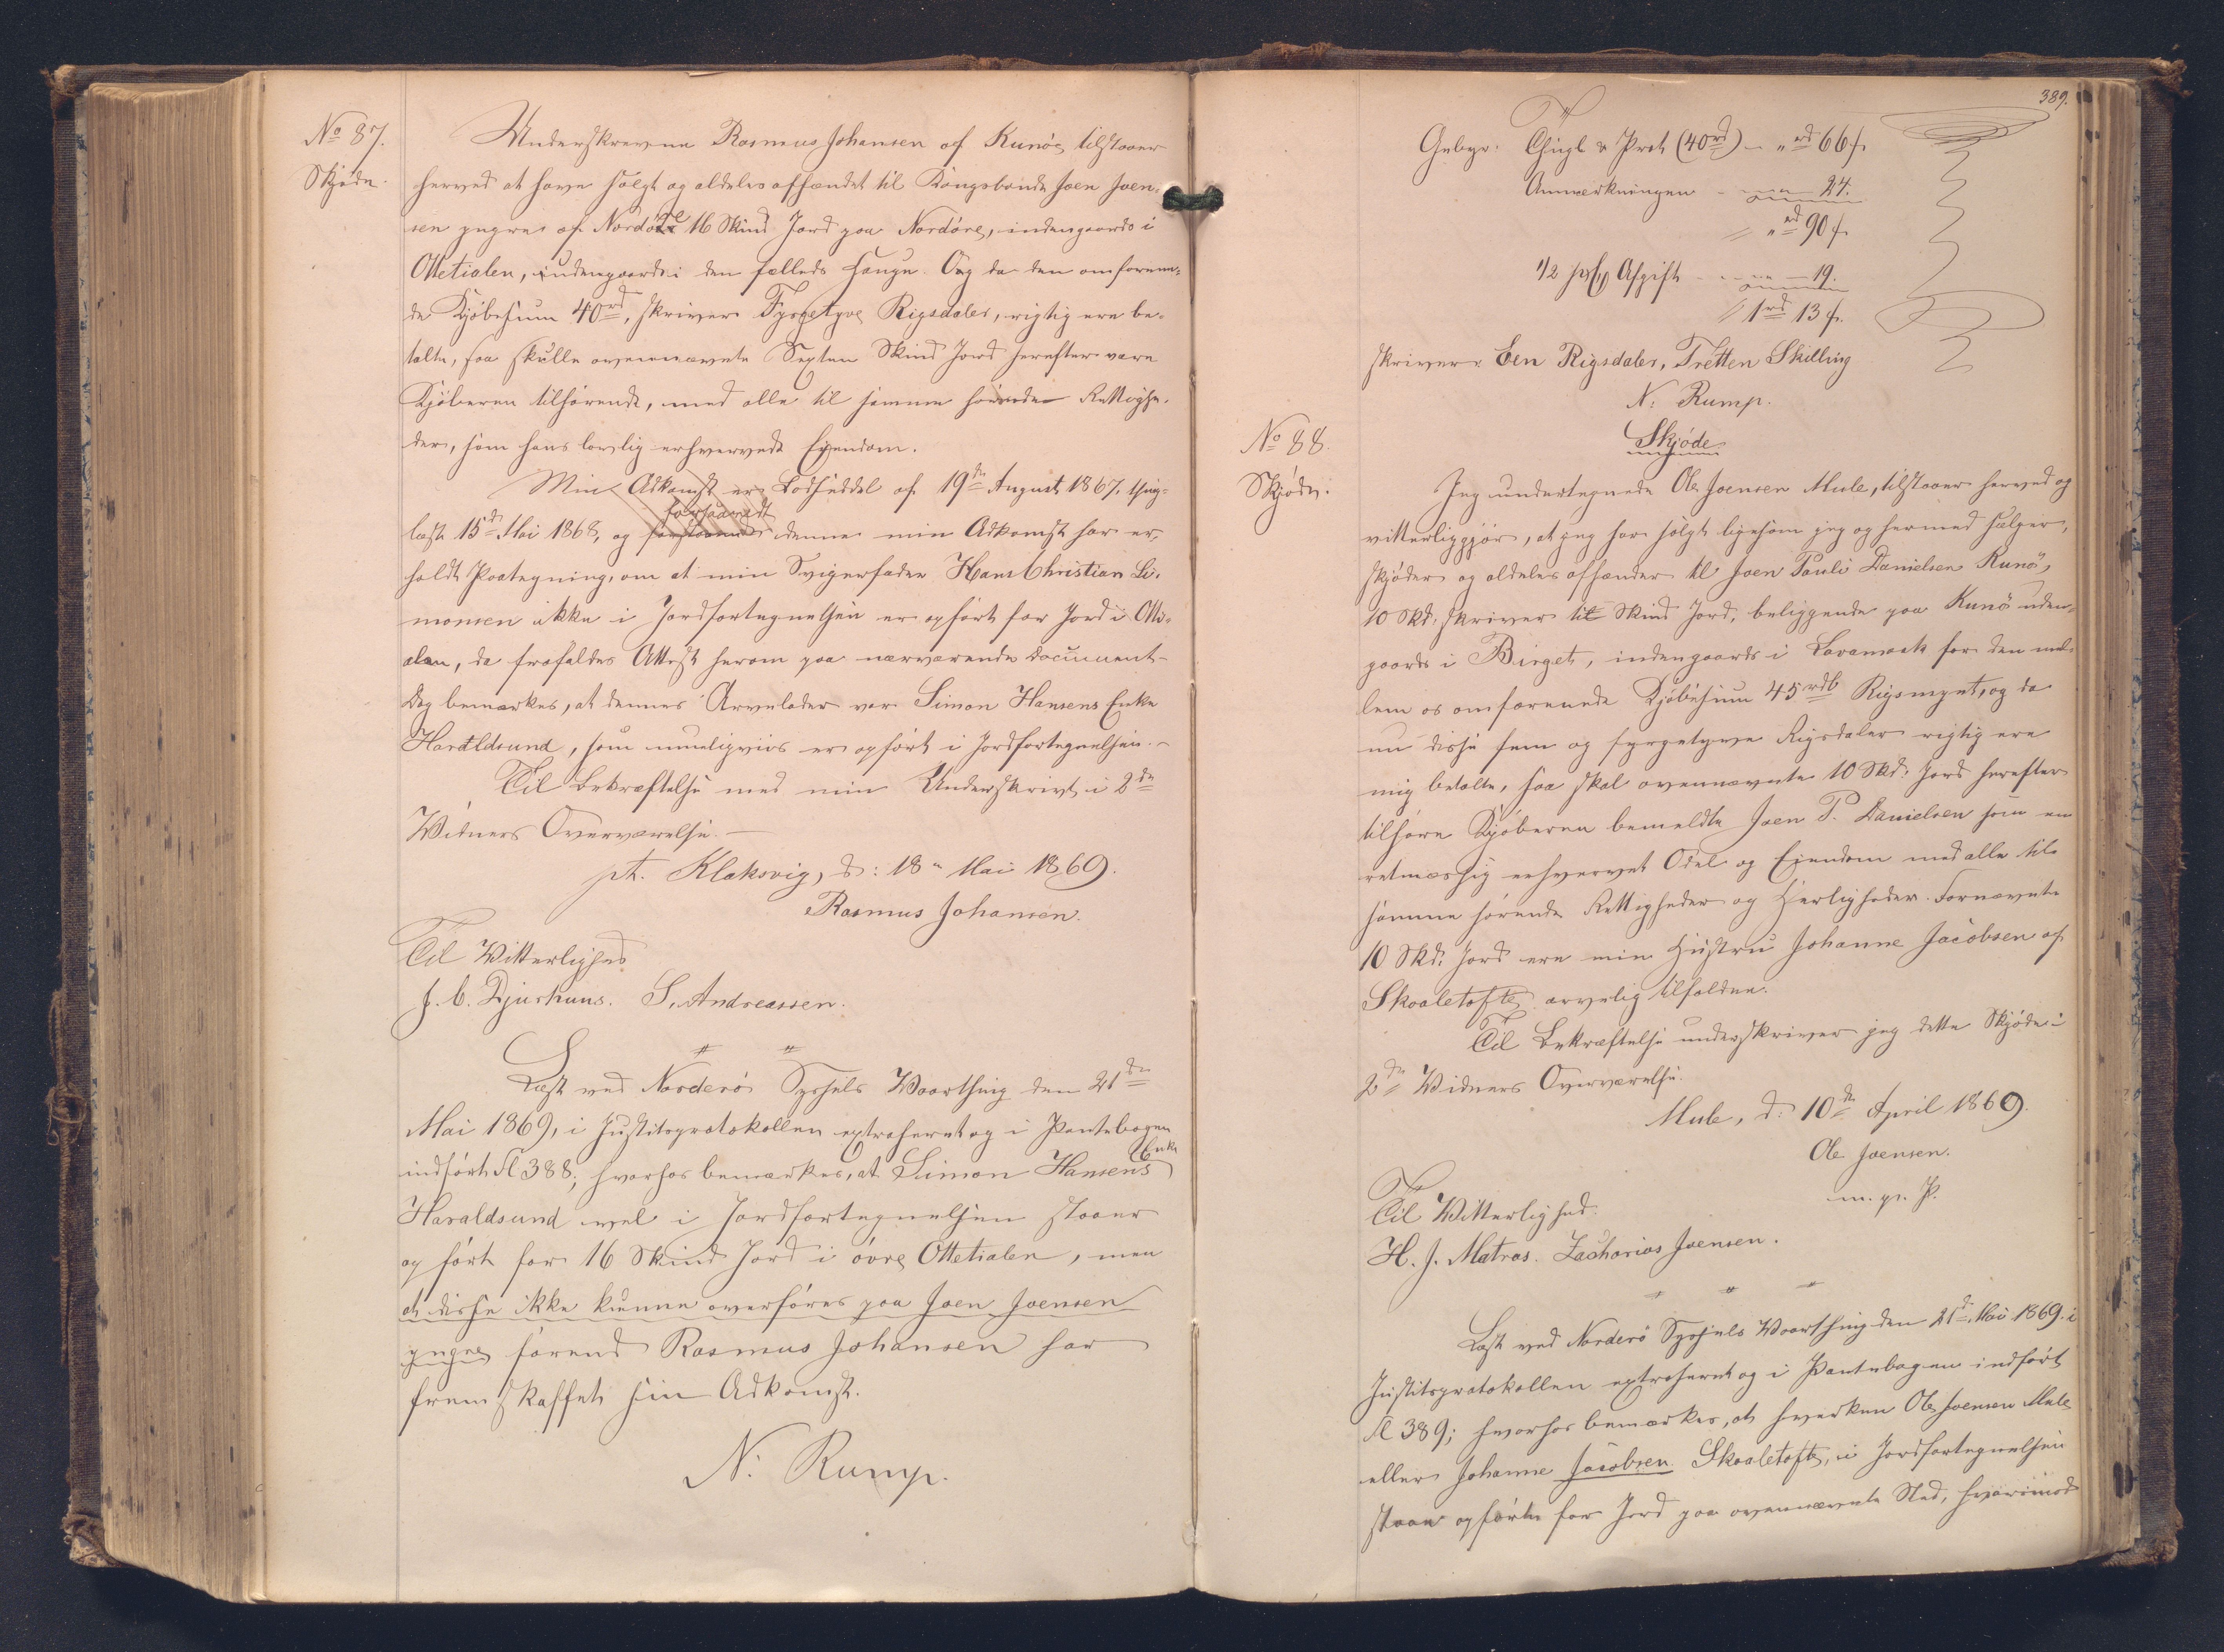 No 87.
Skjøde.
Underskrevne Rasmus Johansen af Kunöe, tilstaaer
herved at have solgt og aldeles afhændet til Kongsbonde Joen Joen-
sen yngre af Nordöre 16 Skind Jord paa Nordöre, indengaards i
Ottetialen, udengaards i den fælleds Hauge. Og da den omforen-
de Kjöbesum 40rd, skriver Fyrgetyve Rigsdaler, rigtig ere be-
talte, saa skulle ovennævnte Sexten Skind Jord herefter være
Kjöberen tilhörende, med alle til samme hörende Rettighe-
der, som hans lovlig erhvervede Ejendom.
Min Adkomst er Lodseddel af 19de August 1867, thing-
læst 15de Mai 1868, og forsaavidt denne min Adkomst har er-
holdt Paategning, om at min Svigerfader Hans Christian Si-
monsen ikke i Jordfortegnelsen er opfört for Jord i Otti-
alen, da frafaldes Attest herom paa nærværende Document.-
Dog bemærkes, at dennes Arvelader var Simon Hansens Enke
Haraldsund, som mueligviis er opfört i Jordfortegnelsen.-
Til Bekræftelse med min Underskrivt i 2de
Widners Overværelse.-
pt. Klaksvig, d: 18" Mai 1869.
Rasmus Johansen.
Til Witterlighed
J. C. Djurhuus. S. Andreassen.
Læst ved Norderö Syssels Waarthing den 21de
Mai 1869, i Justitsprotokollen extraheret og i Pantebogen
indfört Fl 388; hvorhos bemærkes, at Simon Hansens Enke
Haraldsund vel i Jordfortegnelsen staaer
opfört for 16 Skind Jord i övre Ottetialen, men
at disse ikke kunne overföres paa Joen Joensen
yngre förend Rasmus Johansen har
fremskaffet sin Adkomst.
N. Rump.
389.
Gebyr. Thingl & Prot (40rd) - " rd 66 s
Anmærkningen - - 24.
" rd 90 s
1/2 pCt Afgift - - - 19.
1 rd 13 s.
skriver: Een Rigsdaler, Tretten Skilling
N. Rump.
No 88.
Skjøde.
Skjöde
Jeg undertegnede Ole Joensen Mule, tilstaaer herved og
vitterliggjör, at jeg har solgt ligesom jeg og hermed sælger,
skjöder og aldeles afhænder til Joen Pauli Danielsen Kunö,
10 Skd. skriver til Skind Jord, beliggende paa Kunö uden-
gaards i Birget, indengaards i Lavamark for den mel-
lem os omforenede Kjöbesum 45rdb Rigsmynt, og da
nu disse fem og fyrgetyve Rigsdaler rigtig ere
mig betalte, saa skal ovennævnte 10 Skd. Jord herefter
tilhöre Kjöberen bemeldte Joen P. Danielsen som en
retmæssig erhvervet Odel og Ejendom med alle til
samme hörende Rettigheder og Herligheder. Fornævnte
10 Skd. Jord ere min Hustru Johanne Jacobsen af
Skaaletofte arvelig tilfaldne.
Til Bekræftelse underskriver jeg dette Skjöde i
2de Widners Overværelse.
Mule, d: 10de April 1869.
Ole Joensen.
m. p. P.
Til Witterlighed:
H. J. Matras. Zacharias Joensen.
Læst ved Norderö Syssels Waarthing den 21de Mai 1869. i
Justitsprotokollen extraheret og i Pantebogen indfört
Fl 389; hvorhos bemærkes, at hverken Ole Joensen Mule
eller Johanne Jacobsen Skaaletofte, i Jordfortegnelsen
staae opförte for Jord paa ovennævnte Sted, hvorimod